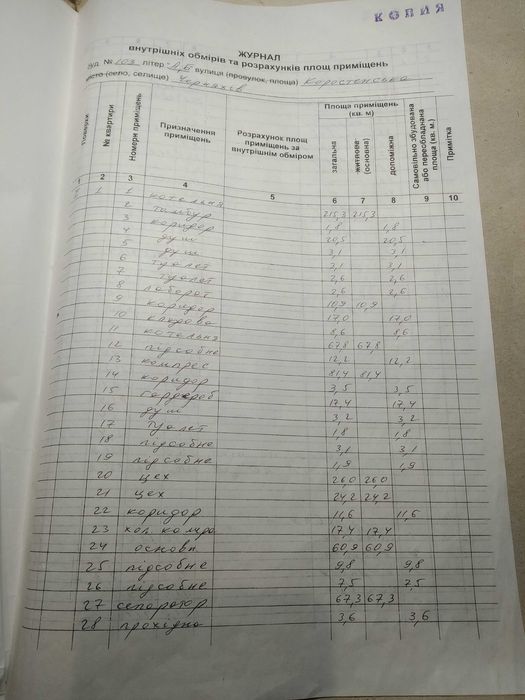 КОПИЯ
ЖУРНАЛ
внутрішніх обмірів та розрахунків площ приміщень
буд. № 103 літер А,Б вулиця (провулок, площа) Коростенська
місто (село, селище) Черняхів
Поверхи № квартири Номери приміщень Призначення приміщень Розрахунок площ приміщень за внутрішнім обміром Площа приміщень (кв. м) загальна житлова (основна) допоміжна Самовільно збудована або переобладнана площа (кв. м.) Примітка
1 2 3 4 5 6 7 8 9 10
1 1 1 котельня 215,3 215,3
2 тамбур 1,8 1,8
3 коридор 20,5 20,5
4 душ 3,1 3,1
5 душ 3,1 3,1
6 туалет 2,6 2,6
7 туалет 2,6 2,6
8 лаборат 10,9 10,9
9 коридор 17,0 17,0
10 кладова 8,6 8,6
11 котельня 67,8 67,8
12 підсобне 12,2 12,2
13 компрес 81,4 81,4
14 коридор 3,5 3,5
15 гардероб 17,4 17,4
16 душ 3,2 3,2
17 туалет 1,8 1,8
18 підсобне 3,1 3,1
19 підсобне 1,9 1,9
20 цех 26,0 26,0
21 цех 24,2 24,2
22 коридор 11,6 11,6
23 хол. камра 17,4 17,4
24 основн 60,9 60,9
25 підсобне 9,8 9,8
26 підсобне 7,5 7,5
27 сепаратор 67,3 67,3
28 прохідна 3,6 3,6